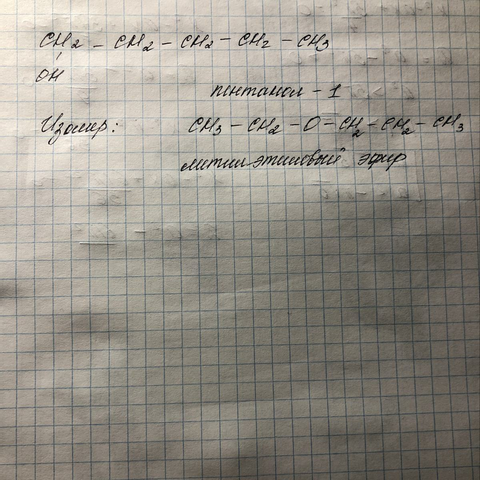 CH2 - CH2 - CH2 - CH2 - CH3
OH
пентанол - 1
Изомер: CH3 - CH2 - O - CH2 - CH2 - CH3
метилэтиловый эфир